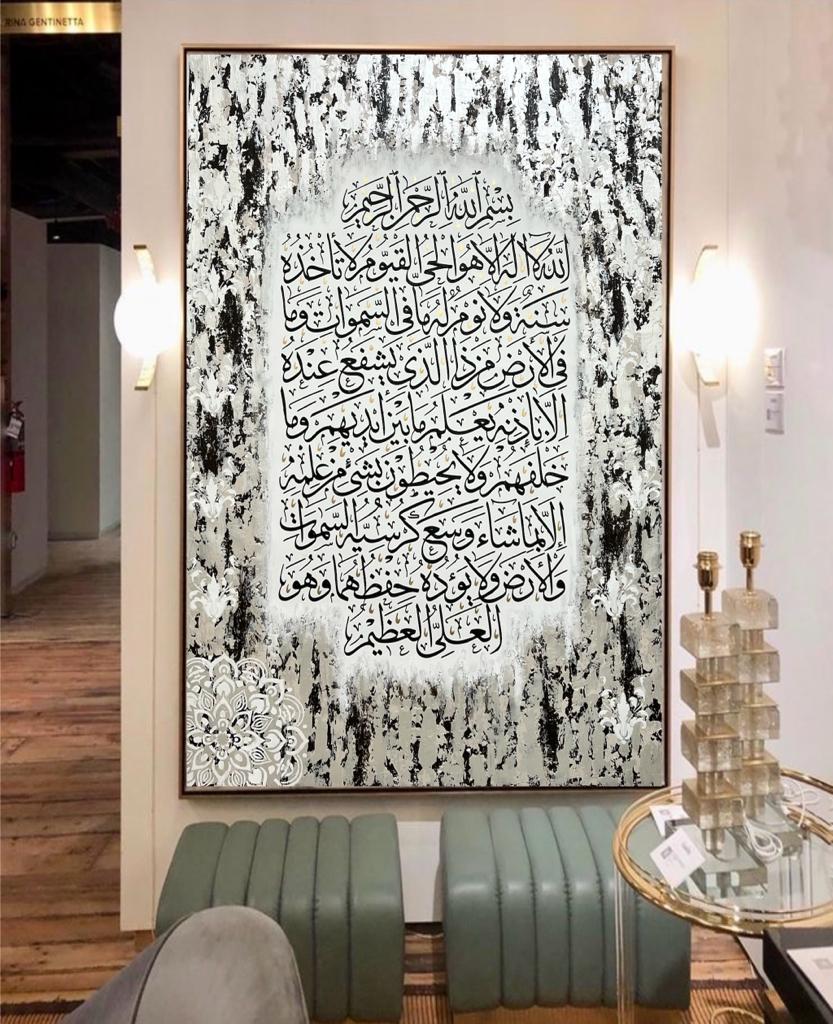 RINA GENTINETTA
بِسْمِ ٱللَّهِ ٱلرَّحْمَٰنِ ٱلرَّحِيمِ
ٱللَّهُ لَا إِلَٰهَ إِلَّا هُوَ ٱلْحَىُّ ٱلْقَيُّومُ لَا تَأْخُذُهُ
سِنَةٌ وَلَا نَوْمٌ لَهُ مَا فِى ٱلسَّمَٰوَاتِ وَمَا
فِى ٱلْأَرْضِ مَن ذَا ٱلَّذِى يَشْفَعُ عِنْدَهُ
إِلَّا بِإِذْنِهِ يَعْلَمُ مَا بَيْنَ أَيْدِيهِمْ وَمَا
خَلْفَهُمْ وَلَا يُحِيطُونَ بِشَىْءٍ مِنْ عِلْمِهِ
إِلَّا بِمَا شَاءَ وَسِعَ كُرْسِيُّهُ ٱلسَّمَٰوَاتِ
وَٱلْأَرْضَ وَلَا يَؤُدُهُ حِفْظُهُمَا وَهُوَ
ٱلْعَلِىُّ ٱلْعَظِيمُ